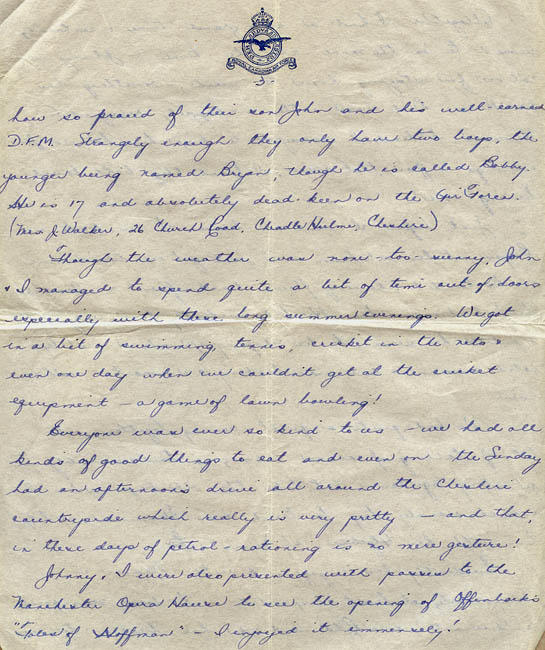 ROYAL CANADIAN AIR FORCE
-3-
how so proud of their son John and his well-earned
D.F.M. Strangely enough they only have two boys, the
younger being named Bryan, though he is called Bobby.
He is 17 and absolutely dead keen on the Air Force.
(Mrs. J. Walker, 26 Church Road, Cheadle Hulme, Cheshire)
Though the weather was none-too-sunny, John
& I managed to spend quite a bit of time out-of-doors
especially with these long summer evenings. We got
in a bit of swimming, tennis, cricket in the nets &
even one day when we couldn't get at the cricket
equipment - a game of lawn bowling!
Everyone was ever so kind to us - we had all
kinds of good things to eat and even on the Sunday
had an afternoon's drive all around the Cheshire
countryside which really is very pretty - and that,
in these days of petrol-rationing is no mere gesture!
Johnny & I were also presented with passes to the
Manchester Opera House to see the opening of Offenbach's
"Tales of Hoffman" - I enjoyed it immensely!